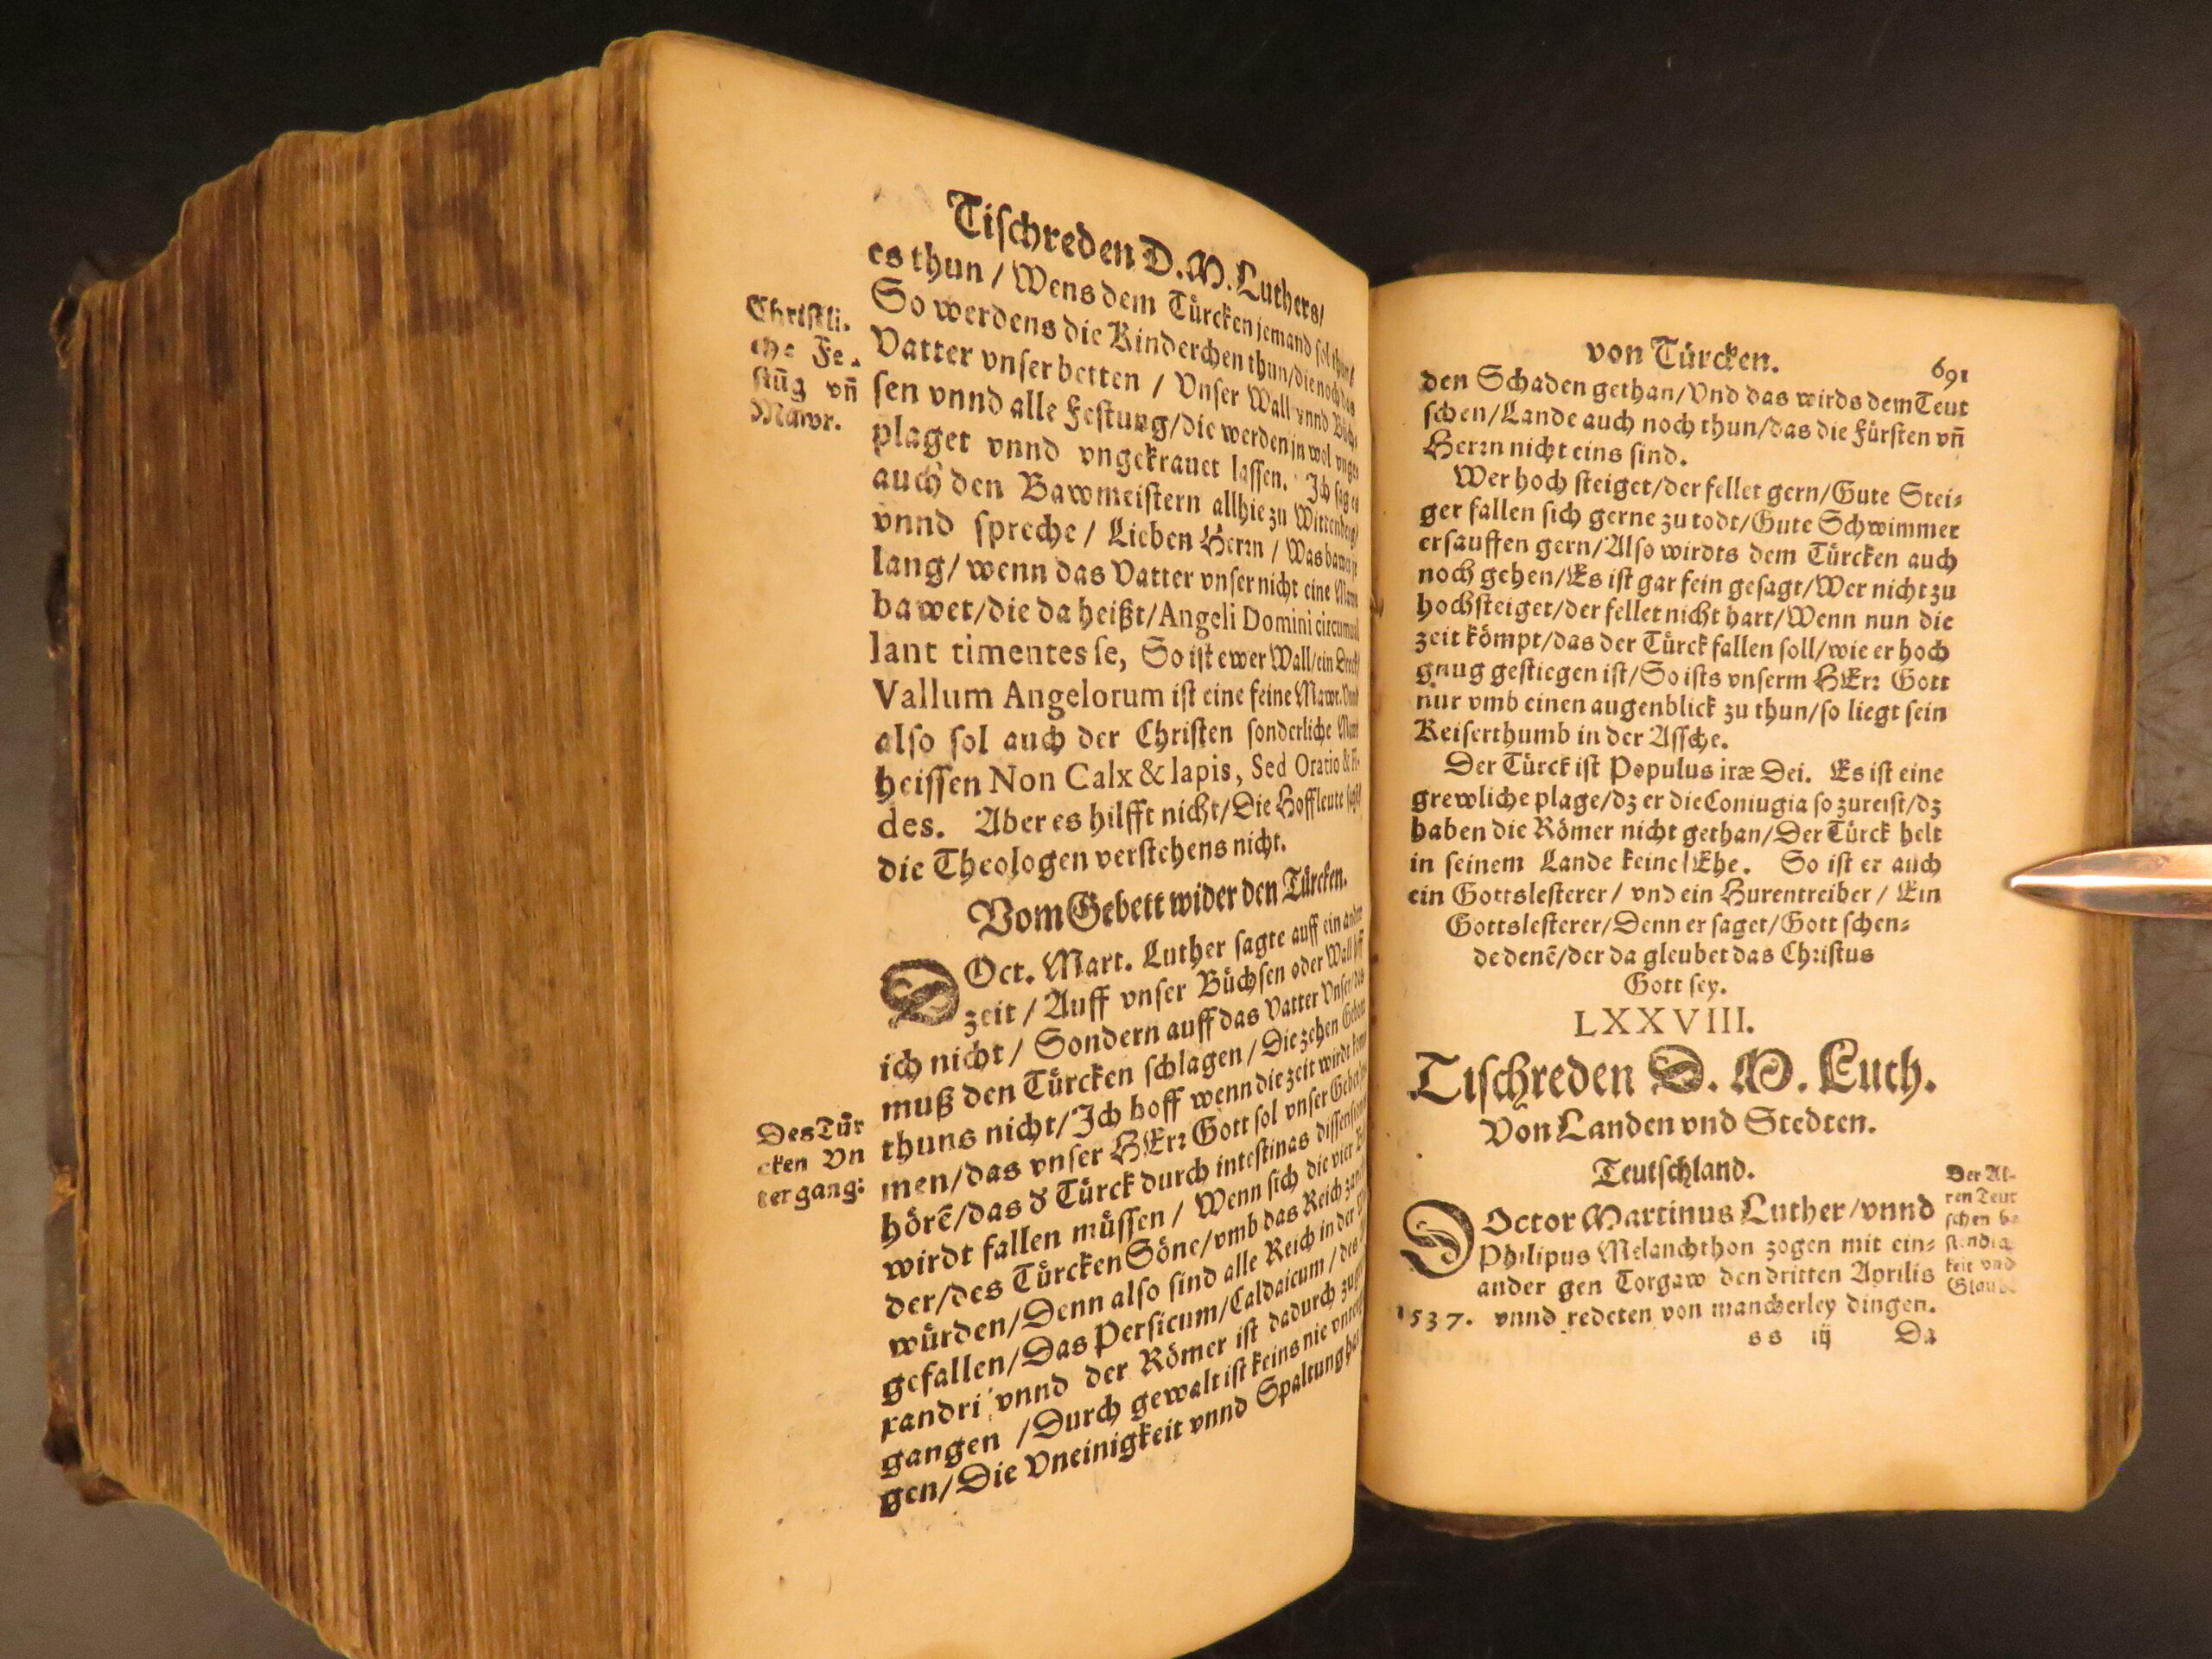 Tiſchreden D. M. Luthers/
es thun / Wens dem Türcken jemand ſol thun/
So werdens die Kinderchen thun/die noch das
Vatter vnſer betten / Vnſer Wall vnnd Büch-
ſen vnnd alle Feſtung/die werden jn wol vnge-
plaget vnnd vngekrauet laſſen. Ich ſag es
auch den Bawmeiſtern allhie zu Wittenberg/
vnnd ſpreche / Lieben Herrn / Was bawt jr
lang/ wenn das Vatter vnſer nicht eine Mawr
bawet/die da heißt/Angeli Domini circumual
lant timentes ſe, So iſt ewer Wall/ein Dreck/
Vallum Angelorum iſt eine feine Mawr. Vnnd
alſo ſol auch der Chriſten ſonderliche Mawr
heiſſen Non Calx & lapis, Sed Oratio & Fi-
des. Aber es hilfft nicht/Die Hoffleute
die Theologen verſtehens nicht.
Chriſtli-
che Fe-
ſtūg vn̄
Mawr.
Vom Gebett wider den Türcken.
DOct. Mart. Luther ſagte auff ein ander
zeit / Auff vnſer Büchſen oder Wall hoff
ich nicht/ Sondern auff das Vatter Vnſer/das
muß den Türcken ſchlagen/ Die zehen Gebott
thuns nicht/Ich hoff wenn die zeit wirdt kom
men/das vnſer HErr Gott ſol vnſer Gebet
hörē/das ď Türck durch inteſtinas diſſenſiones
wirdt fallen müſſen / Wenn ſich die vier
der/des Türcken Söne/vmb das Reich
würden/Denn alſo ſind alle Reich in der
gefallen/Das Perſicum/Caldaicum/des
xandri vnnd der Römer iſt dadurch
gangen /Durch gewalt iſt keins nie
gen/Die Vneinigkeit vnnd Spaltung
Des Tür
cken Vn
tergang:
von Türcken. 691
den Schaden gethan/Vnd das wirds dem Teut
ſchen/Lande auch noch thun/das die Fürſten vn̄
Herrn nicht eins ſind.
Wer hoch ſteiget/der fellet gern/Gute Stei-
ger fallen ſich gerne zu todt/Gute Schwimmer
erſauffen gern/Alſo wirdts dem Türcken auch
noch gehen/Es iſt gar fein geſagt/Wer nicht zu
hoch ſteiget/der fellet nicht hart/Wenn nun die
zeit kömpt/das der Türck fallen ſoll/wie er hoch
gnug geſtiegen iſt/So iſts vnſerm HErr Gott
nur vmb einen augenblick zu thun/ſo liegt ſein
Keiſerthumb in der Aſſche.
Der Türck iſt Populus iræ Dei. Es iſt eine
grewliche plage/dz er die Coniugia ſo zureiſt/dz
haben die Römer nicht gethan/Der Türck helt
in ſeinem Lande keine Ehe. So iſt er auch
ein Gottsleſterer / vnd ein Hurentreiber / Ein
Gottsleſterer/Denn er ſaget/Gott ſchen-
de denē/der da gleubet das Chriſtus
Gott ſey.
LXXVIII.
Tiſchreden D. M. Luth.
Von Landen vnd Stedten.
Teutſchland.
DOctor Martinus Luther/vnnd
Philipus Melanchthon zogen mit ein-
ander gen Torgaw den dritten Aprilis
1537. vnnd redeten von mancherley dingen.
Der Al-
ten Teut
ſchen be
ſtendig
keit vnd
Glaub
ss iij Da